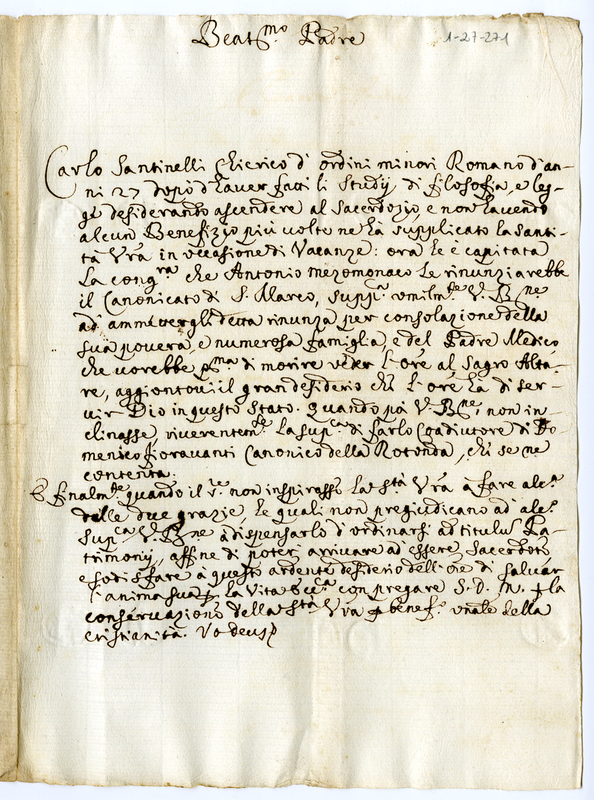 Beat.mo Padre
1-27-271
Carlo Santinelli Chierico d'ordini minori Romano d'an-
ni 27 dopo d'haver fatti li Studij di filosofia, e leg-
gi desiderando ascendere al Sacerdozio e non havendo
alcun Benefizio più volte ne ha supplicato la Santi-
tà Vra in occasione di Vacanze: ora le è capitata
la cong.ra che Antonio mezomonaco le rinunziarebbe
il Canonicato di S. Marco, supp.ca umilm.te V. B.ne
ad ammettergli detta rinunza per consolazione della
sua povera, e numerosa famiglia, e del Padre Medico
che vorebbe p.ma di morire veder l'ore al Sagro Alta-
re, aggiontovi il gran desiderio che l'ore ha di ser-
vir Dio in questo Stato. Quando poi V. B.ne non in-
clinasse, riverentem.te la sup.ca di farlo Coadiutore di Do-
menico fioravanti Canonico della Rotonda, che se ne
contenta.
E finalm.te quando il non inspirasse la S.tà Vra à fare alc.a
delle due grazie le quali non pregiudicano ad alc.o
sup.ca V. B.ne à dispensarlo d'ordinarsi ad titulus Pa-
trimonij, affine di poter arrivare ad essere Sacerdote
e sodisfare à questo ardente desiderio dell'ore di salvar
l'anima sua, la Vita con pregare S. D. M. p la
conservazione della S.tà Vra p benef.o unale della
cristianità.